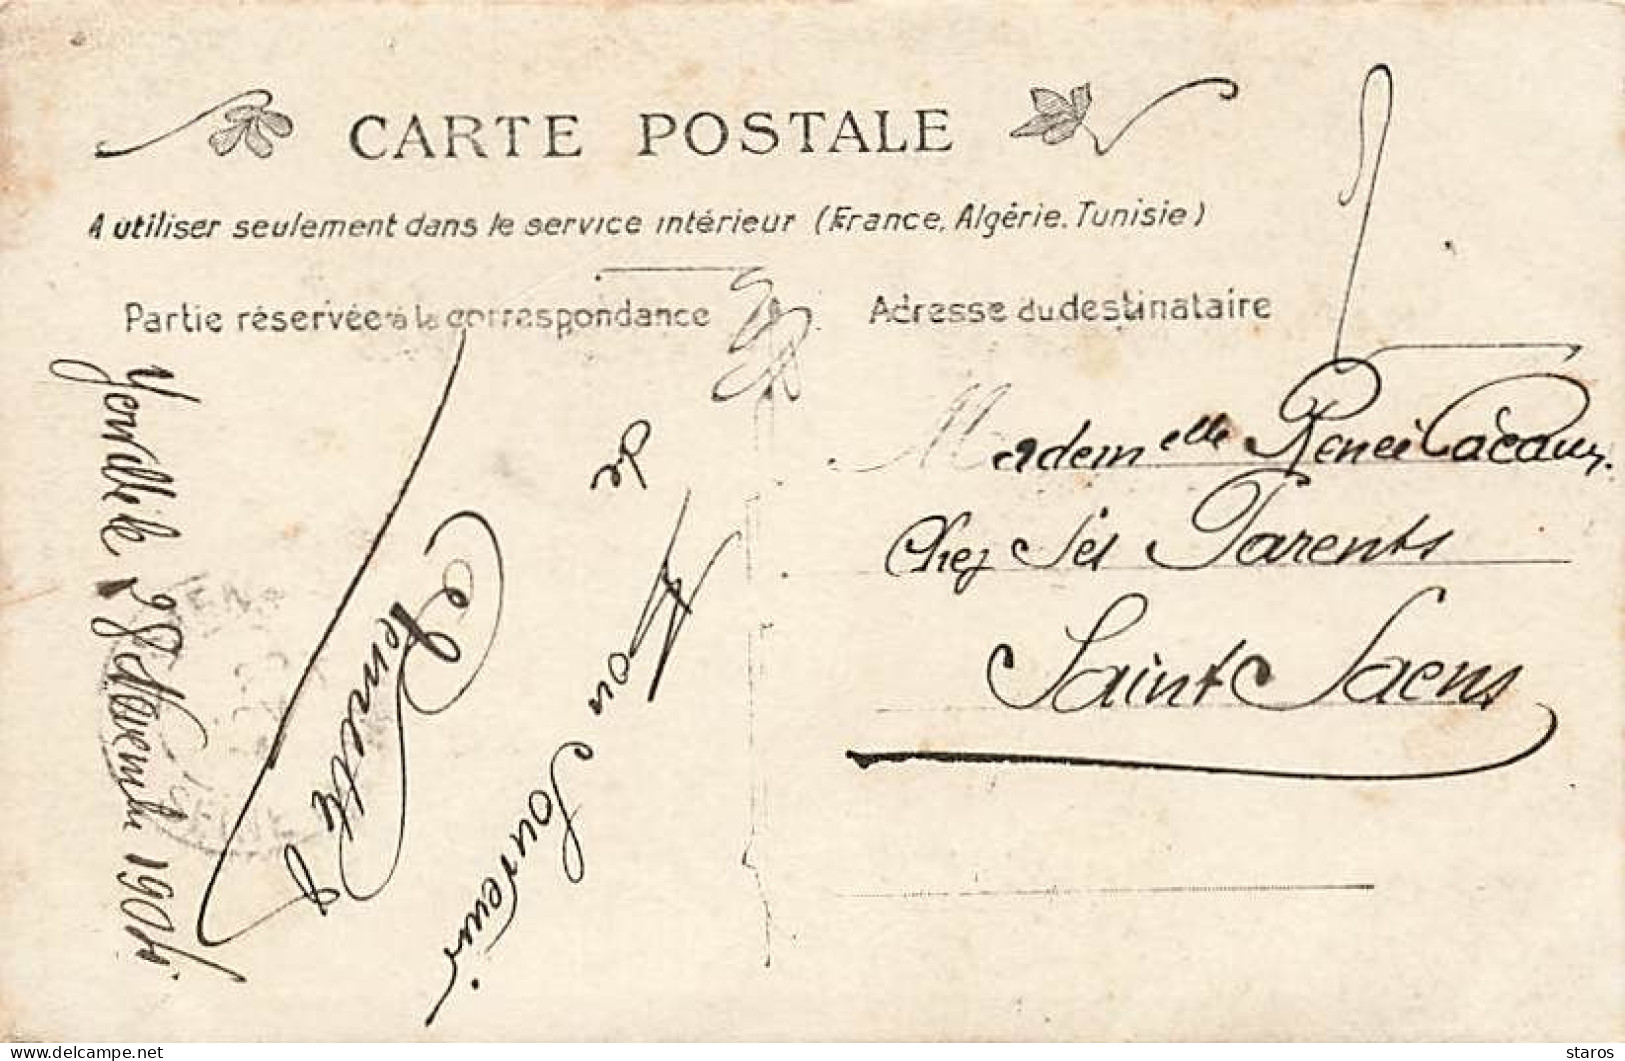 CARTE POSTALE
A utiliser seulement dans le service intérieur (France, Algérie, Tunisie)
Partie réservée à la correspondance
Adresse du destinataire
Yerville le 28 Novembre 1904
de
Bon Souvenir
Mademelle Renée
Chez Ses Parents
Saint Saens
staros